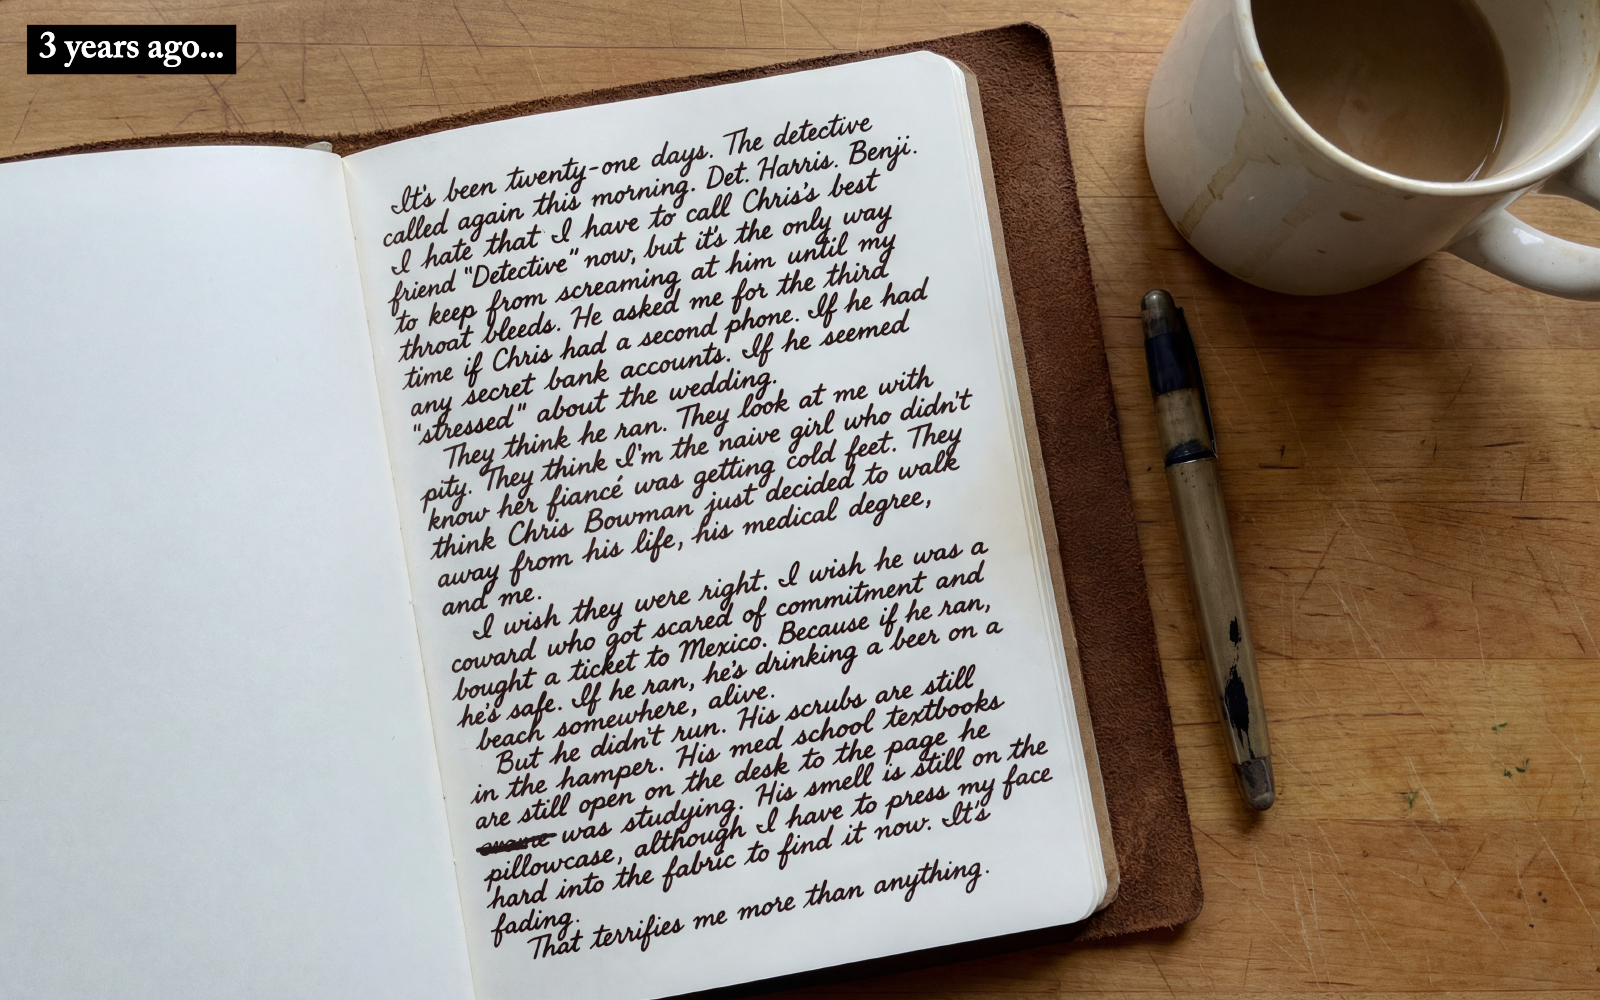 3 years ago...
It's been twenty-one days. The detective
called again this morning. Det. Harris. Benji.
I hate that I have to call Chris's best
friend "Detective" now, but it's the only way
to keep from screaming at him until my
throat bleeds. He asked me for the third
time if Chris had a second phone. If he had
any secret bank accounts. If he seemed
"stressed" about the wedding.
They think he ran. They look at me with
pity. They think I'm the naive girl who didn't
know her fiancé was getting cold feet. They
think Chris Bowman just decided to walk
away from his life, his medical degree,
and me.
I wish they were right. I wish he was a
coward who got scared of commitment and
bought a ticket to Mexico. Because if he ran,
he's safe. If he ran, he's drinking a beer on a
beach somewhere, alive.
But he didn't run. His scrubs are still
in the hamper. His med school textbooks
are still open on the desk to the page he
was studying. His smell is still on the
pillowcase, although I have to press my face
hard into the fabric to find it now. It's
fading.
That terrifies me more than anything.